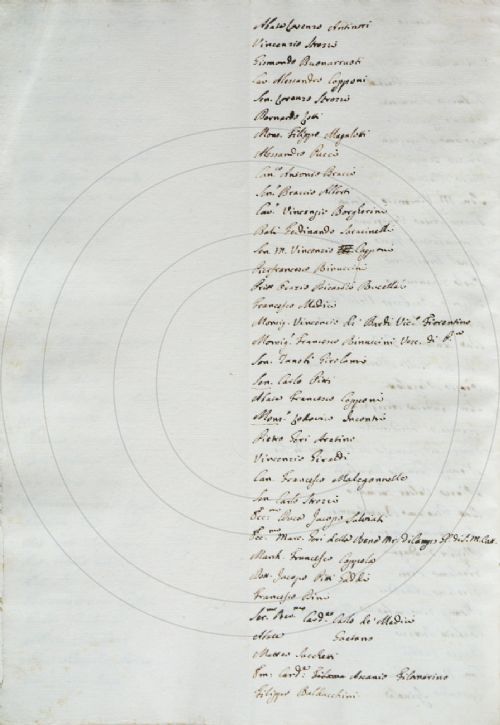 Abate Lorenzo Antinori
Vincenzio Strozzi
Gismondo Buonarruoti
Cav. Alessandro Capponi
Sen. Lorenzo Strozzi
Bernardo
Mons. Filippo Magalotti
Alessandro Pucci
Can.co Antonio Bracci
Sen. Braccio Alberti
Cav. Vincenzio Borgherini
Balì Ferdinando Saracinelli
Sen. Vincenzio Capponi
Pierfrancesco Rinuccini
Orazio Ricasoli Rucellai
Francesco Medici
Monsig. Vincenzio de' Bardi Fiorentino
Monsig. Francesco Rinuccini Vesc. di
Sen. Zanobi Girolami
Sen. Carlo Pitti
Abate Francesco Capponi
Mons. Lodovico Incontri
Pietro Neri Aretino
Vincenzio Giraldi
Can. Francesco Malegonnelle
Sen. Carlo Strozzi
Ecc.mo Duca Jacopo Salviati
Ecc.mo Marc. della Rena di S. M. Catt.
March. Francesco Coppola
Jacopo
Francesco
Ser.mo Rev.mo Card.le Carlo de' Medici
Abate Gaetano
Matteo Sacchetti
Em. Card.le Ascanio Filamarino
Filippo Baldacchini